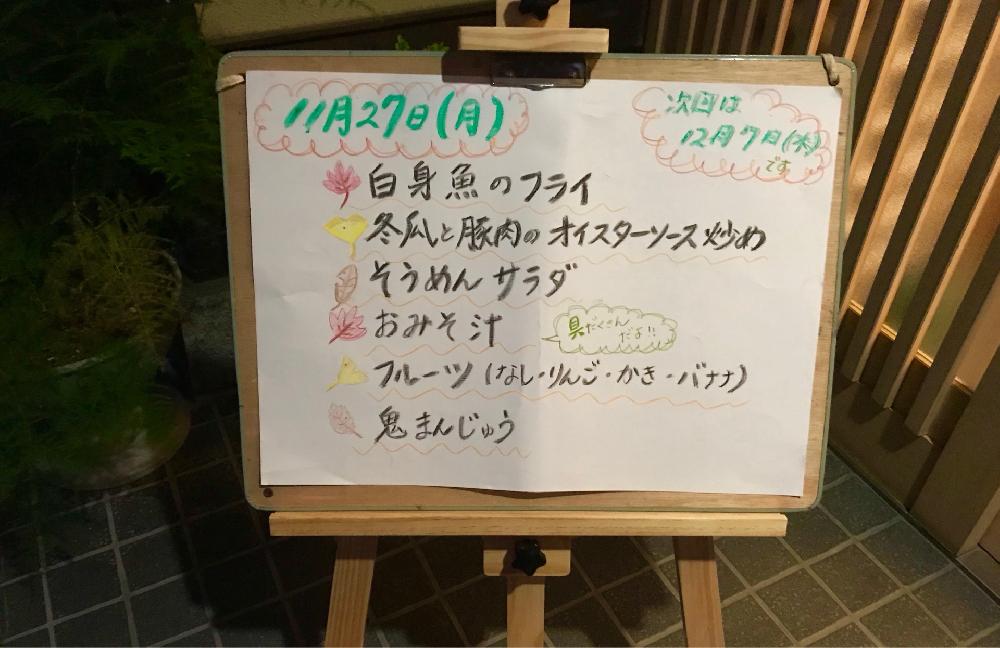 11月27日(月)
次回は
12月7日(木)
です
白身魚のフライ
冬瓜と豚肉のオイスターソース炒め
そうめんサラダ
おみそ汁
具だくさん
だよ!!
フルーツ(なし・りんご・かき・バナナ)
鬼まんじゅう